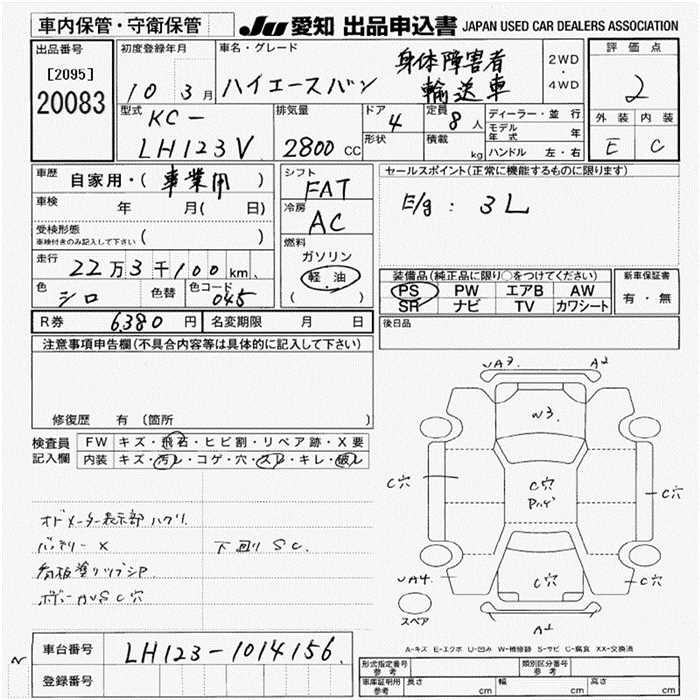 車内保管・守衛保管
JU 愛知 出品申込書 JAPAN USED CAR DEALERS ASSOCIATION
出品番号
[2095]
20083
初度登録年月
10 3月
車名・グレード
ハイエースバン
身体障害者
輸送車
2WD
・
4WD
評価点
2
外装 内装
E C
型式
KC-
LH123V
排気量
2800 CC
ドア
4
定員
8 人
形状
積載
kg
ディーラー・並行
モデル年式 年
ハンドル 左・右
車歴
自家用・( 事業用 )
車検
年 月( 日)
受検形態
車検付きのみ記入して下さい ( )
走行
22万3千100km
色
シロ
色替
色コード
045
シフト
FAT
冷房
AC
燃料
ガソリン
軽油
( )
セールスポイント(正常に機能するものに限ります)
E/g: 3L
装備品(純正品に限り○をつけてください)
PS PW エアB AW
SR ナビ TV カワシート
新車保証書
有・無
R券 6380 円 名変期限 月 日
後日品
注意事項申告欄(不具合内容等は具体的に記入して下さい)
修復歴 有 〔箇所 〕
検査員
記入欄
FW キズ・飛石・ヒビ割・リペア跡・X要
内装 キズ・汚レ・コゲ・穴・スレ・キレ・破レ
オドメーター表示部ハクリ
バッテリーX
下回りSC.
看板塗りツブシP.
C穴
A2
W3
C穴
C穴
C穴
C穴
C穴
スペア
A-キズ E-エクボ U-凹み W-補修跡 S-サビ C-腐食 XX-交換済
車台番号 LH123-1014156.
登録番号
形式指定番号
参考
類別区分番号
参考
車庫証明用
参考
長さ cm 幅 cm 高さ cm